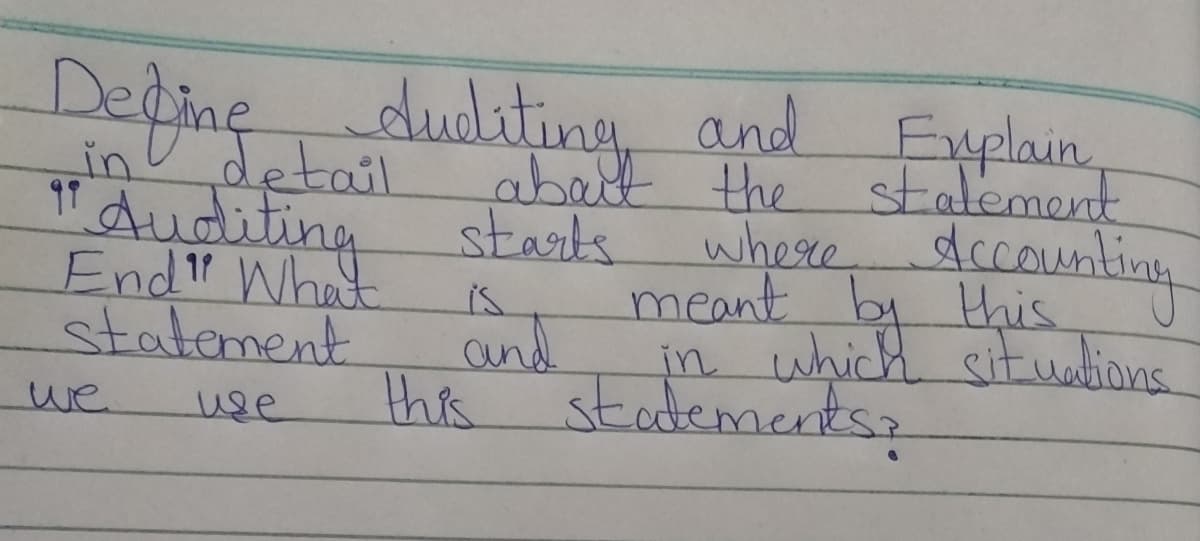 Define Auditing and Explain
in detail about the statement
"Auditing starts where Accounting
End" What is meant by this
statement and in which situations
we use this statements?